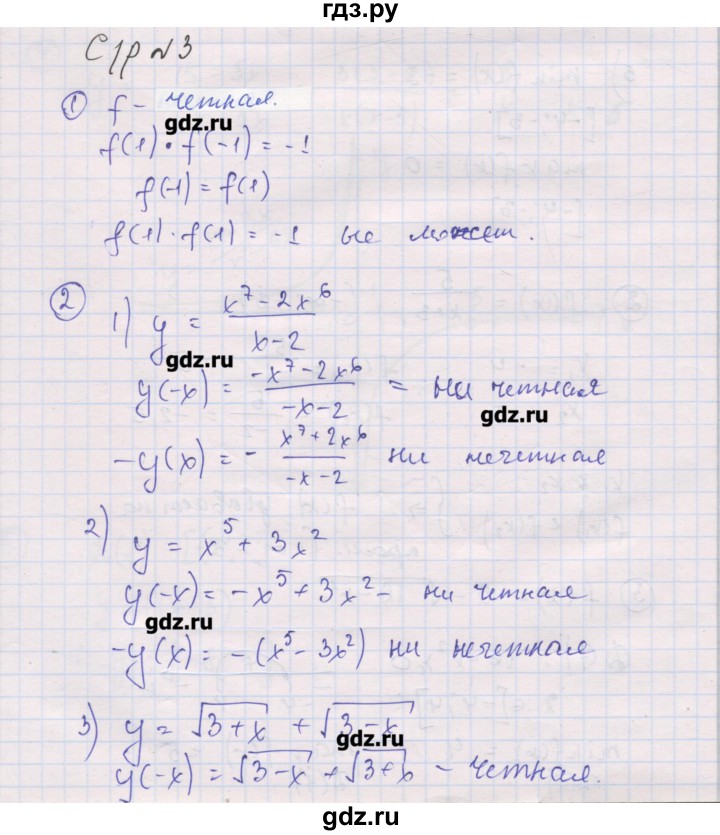 гдз.ру
С/р №3
① f – четная.
gdz.ru
f(1) · f(-1) = -1
f(-1) = f(1)
f(1) · f(1) = -1 не может.
② 1) y = (x^7 - 2x^6)/(x-2)
gdz.ru
y(-x) = (-x^7 - 2x^6)/(-x-2) = ни четная
gdz.ru
-y(x) = - (x^7 + 2x^6)/(-x-2) ни нечетная
2) y = x^5 + 3x^2
y(-x) = -x^5 + 3x^2 – ни четная
gdz.ru
-y(x) = -(x^5 - 3x^2) ни нечетная
3) y = √(3+x) + √(3-x)
gdz.ru
y(-x) = √(3-x) + √(3+x) – четная.
gdz.ru